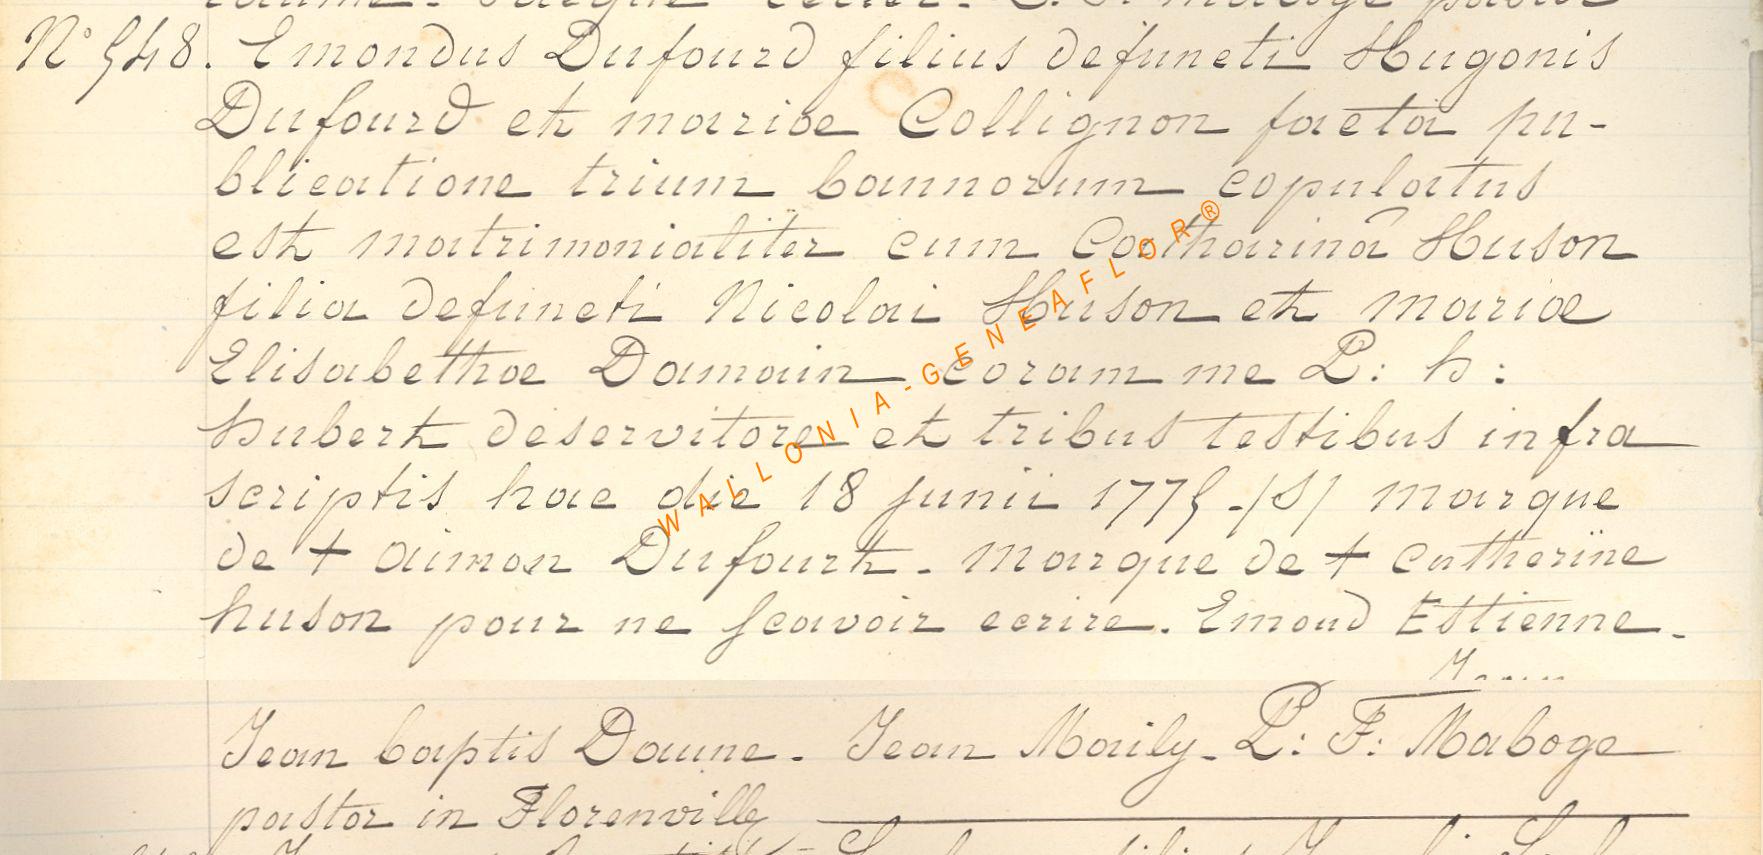 N° 548. Emondus Dufourd filius defuncti Hugonis
Dufourd et mariae Collignon facta pu-
blicatione trium bannorum copulatus
est matrimonialiter cum Catharinâ Huson
filia defuncti Nicolai Huson et mariae
Elisabethae Damain coram me P: h:
hubert deservitore et tribus testibus infra
scriptis hac die 18 junii 1775 -/S/ marque
de + aimon Dufourt - marque de + catherine
huson pour ne scavoir ecrire. Emond Estienne -
Jean
Jean baptis Daune - Jean Maily - P: F: Maboge
pastor in Florenville
WALLONIA-GENEAFLOR®